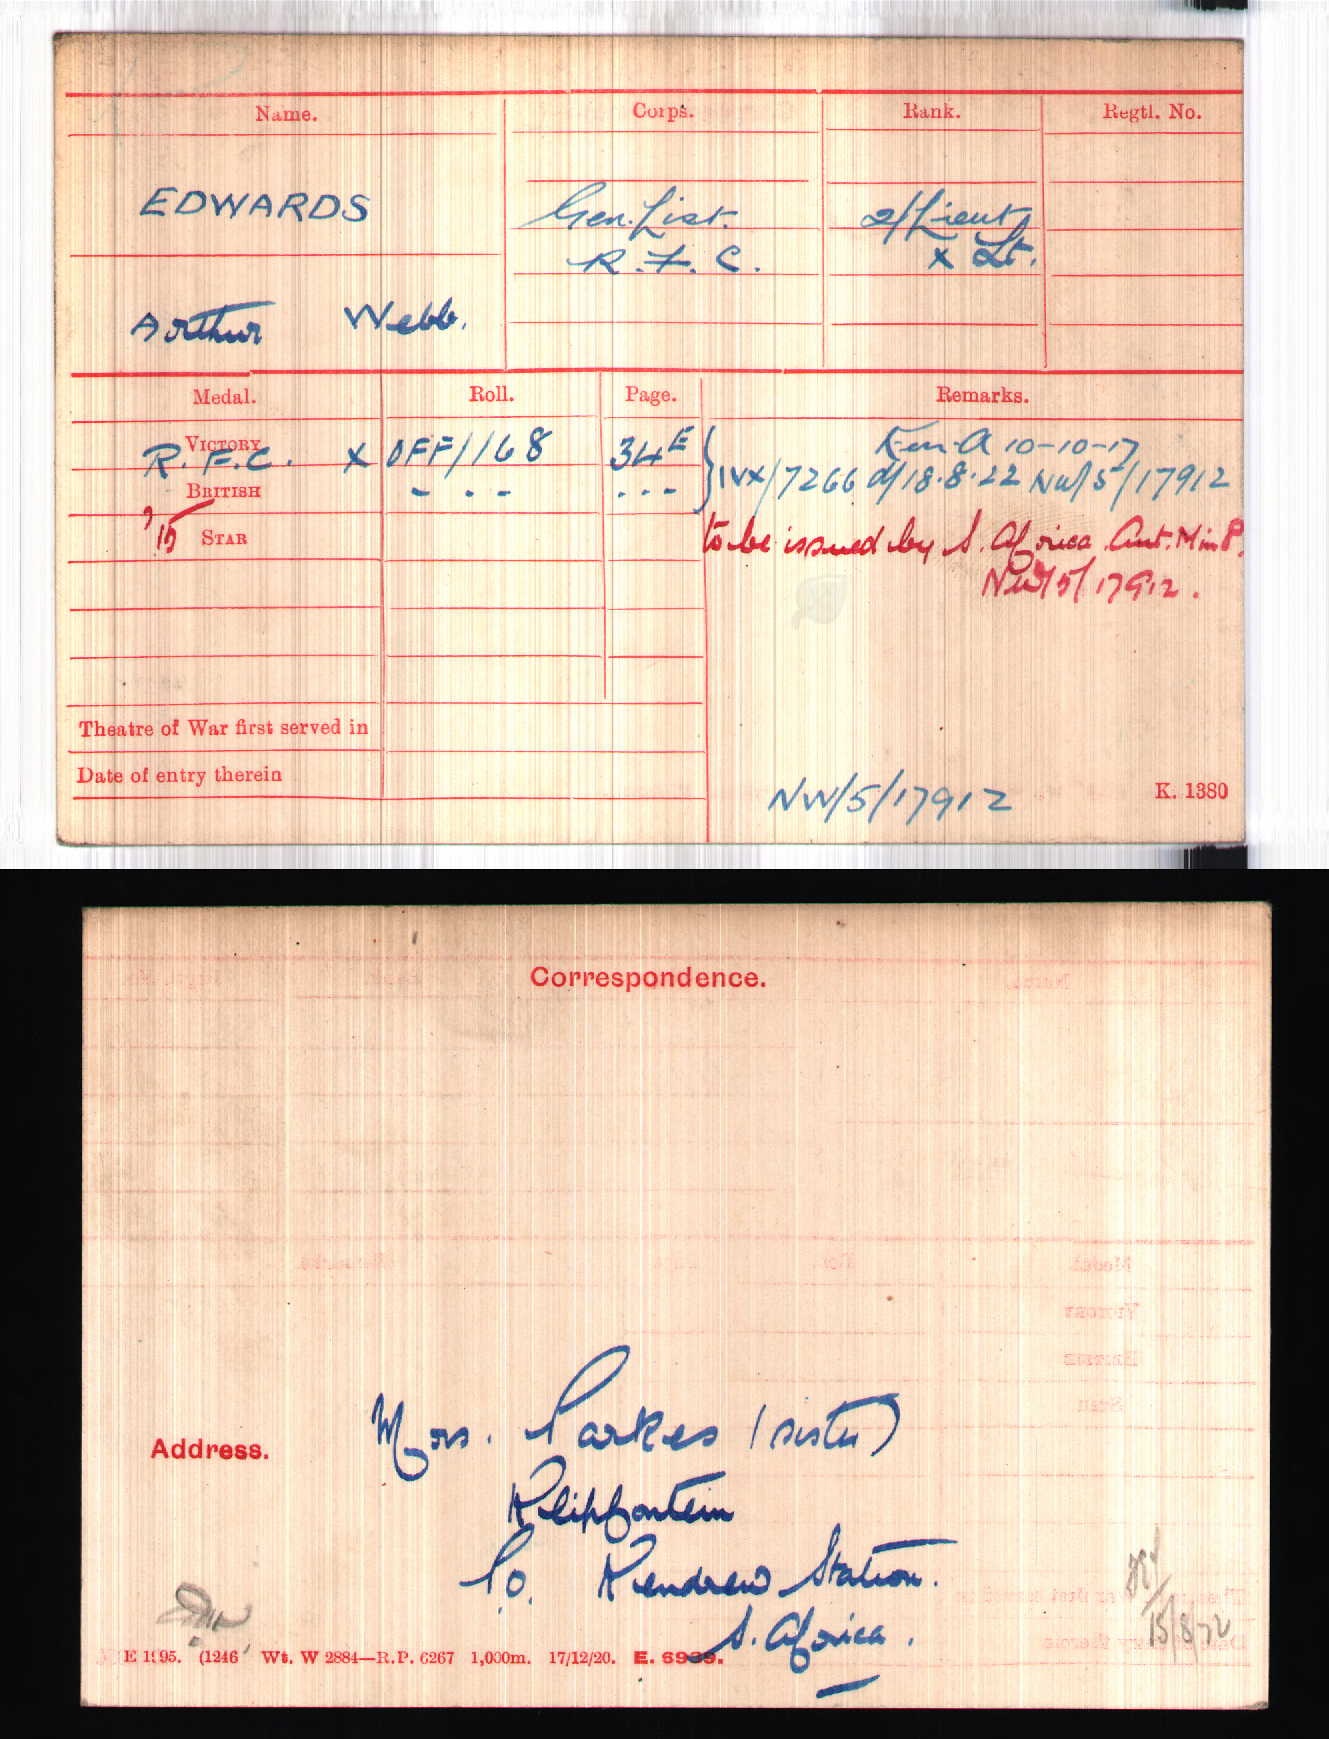 Name. Corps. Rank. Regtl. No.
EDWARDS Gen. List. 2/Lieut
R. F. C. x Lt.
Arthur Webb.
Medal. Roll. Page. Remarks.
VICTORY K in A 10-10-17
R. F. C. x OFF/168 34E
BRITISH - . - . . . IVX/7266 d/18.8.22 NW/5/17912
'15 STAR to be issued by S. Africa
NW/5/17912.
Theatre of War first served in
Date of entry therein
NW/5/17912 K. 1380
Correspondence.
Address. Mrs. Parkes (sister)
Klipfontein
P.O. Kendrew Station.
S. Africa.
15/8/22
E 1595. (1246) Wt. W 2884—R.P. 6267 1,000m. 17/12/20. E. 6939.